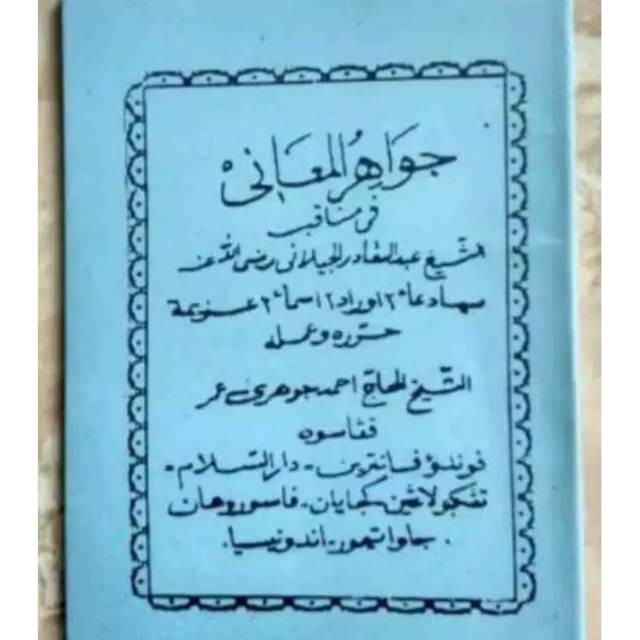 جواهر المعانى
فى مناقب
الشيخ عبد القادر الجيلانى رضى الله عنه
دعاء٢ اوراد٢ اسماء٢ عزيمة
حرره وعمله
الشيخ الحاج احمد جوهرى عمر
فڠاسوه
فوندؤ فسانترين - دار السلام -
تڠكولاڠين كجايان - فاسوروهان
جاوا تيمور - اندونيسيا .